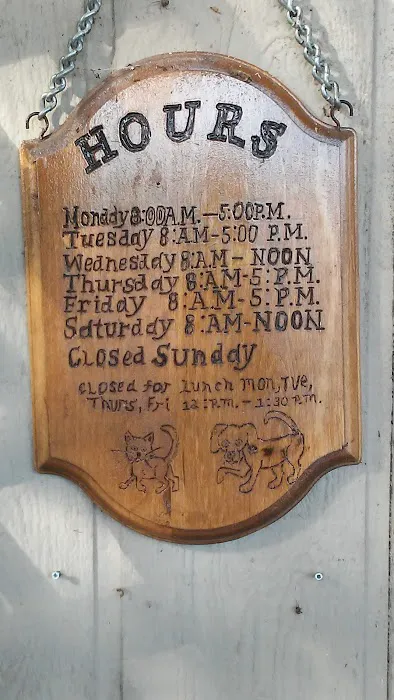 HOURS
Monday 8:00A.M.-5:00P.M.
Tuesday 8:AM-5:00 P.M.
Wednesday 8:AM- NOON
Thursday 8:AM-5:P.M.
Friday 8:A.M-5:P.M.
Saturday 8:AM-NOON
Closed Sunday
closed for lunch mon,Tue,
Thurs, Fri 12:P.M.-1:30 P.M.